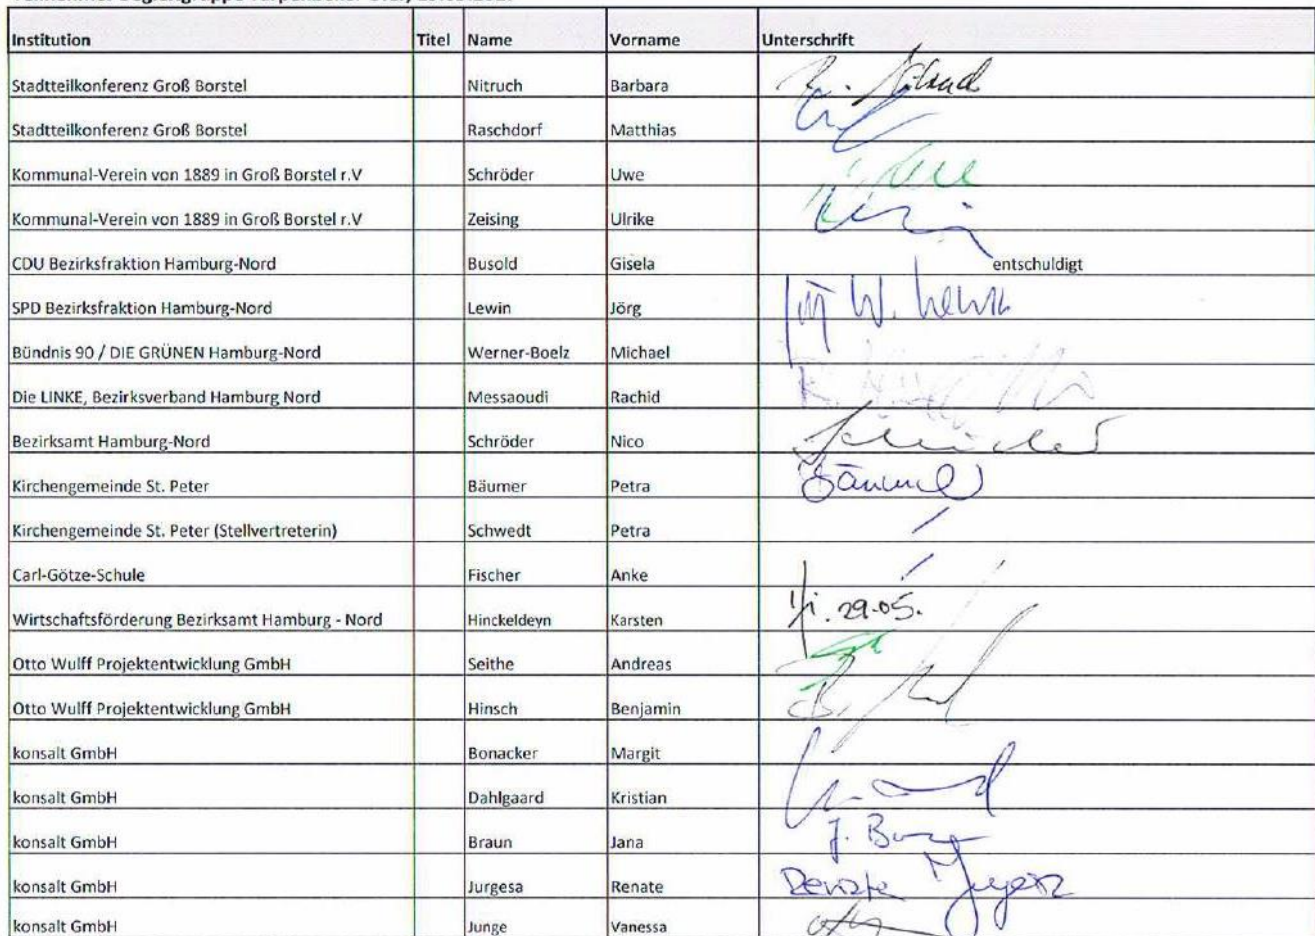 Institution Titel Name Vorname Unterschrift
Stadtteilkonferenz Groß Borstel Nitruch Barbara
Stadtteilkonferenz Groß Borstel Raschdorf Matthias
Kommunal-Verein von 1889 in Groß Borstel r.V Schröder Uwe
Kommunal-Verein von 1889 in Groß Borstel r.V Zeising Ulrike
CDU Bezirksfraktion Hamburg-Nord Busold Gisela entschuldigt
SPD Bezirksfraktion Hamburg-Nord Lewin Jörg
Bündnis 90 / DIE GRÜNEN Hamburg-Nord Werner-Boelz Michael
Die LINKE, Bezirksverband Hamburg Nord Messaoudi Rachid
Bezirksamt Hamburg-Nord Schröder Nico
Kirchengemeinde St. Peter Bäumer Petra
Kirchengemeinde St. Peter (Stellvertreterin) Schwedt Petra
Carl-Götze-Schule Fischer Anke
Wirtschaftsförderung Bezirksamt Hamburg - Nord Hinckeldeyn Karsten 29.05.
Otto Wulff Projektentwicklung GmbH Seithe Andreas
Otto Wulff Projektentwicklung GmbH Hinsch Benjamin
konsalt GmbH Bonacker Margit
konsalt GmbH Dahlgaard Kristian
konsalt GmbH Braun Jana
konsalt GmbH Jurgesa Renate
konsalt GmbH Junge Vanessa